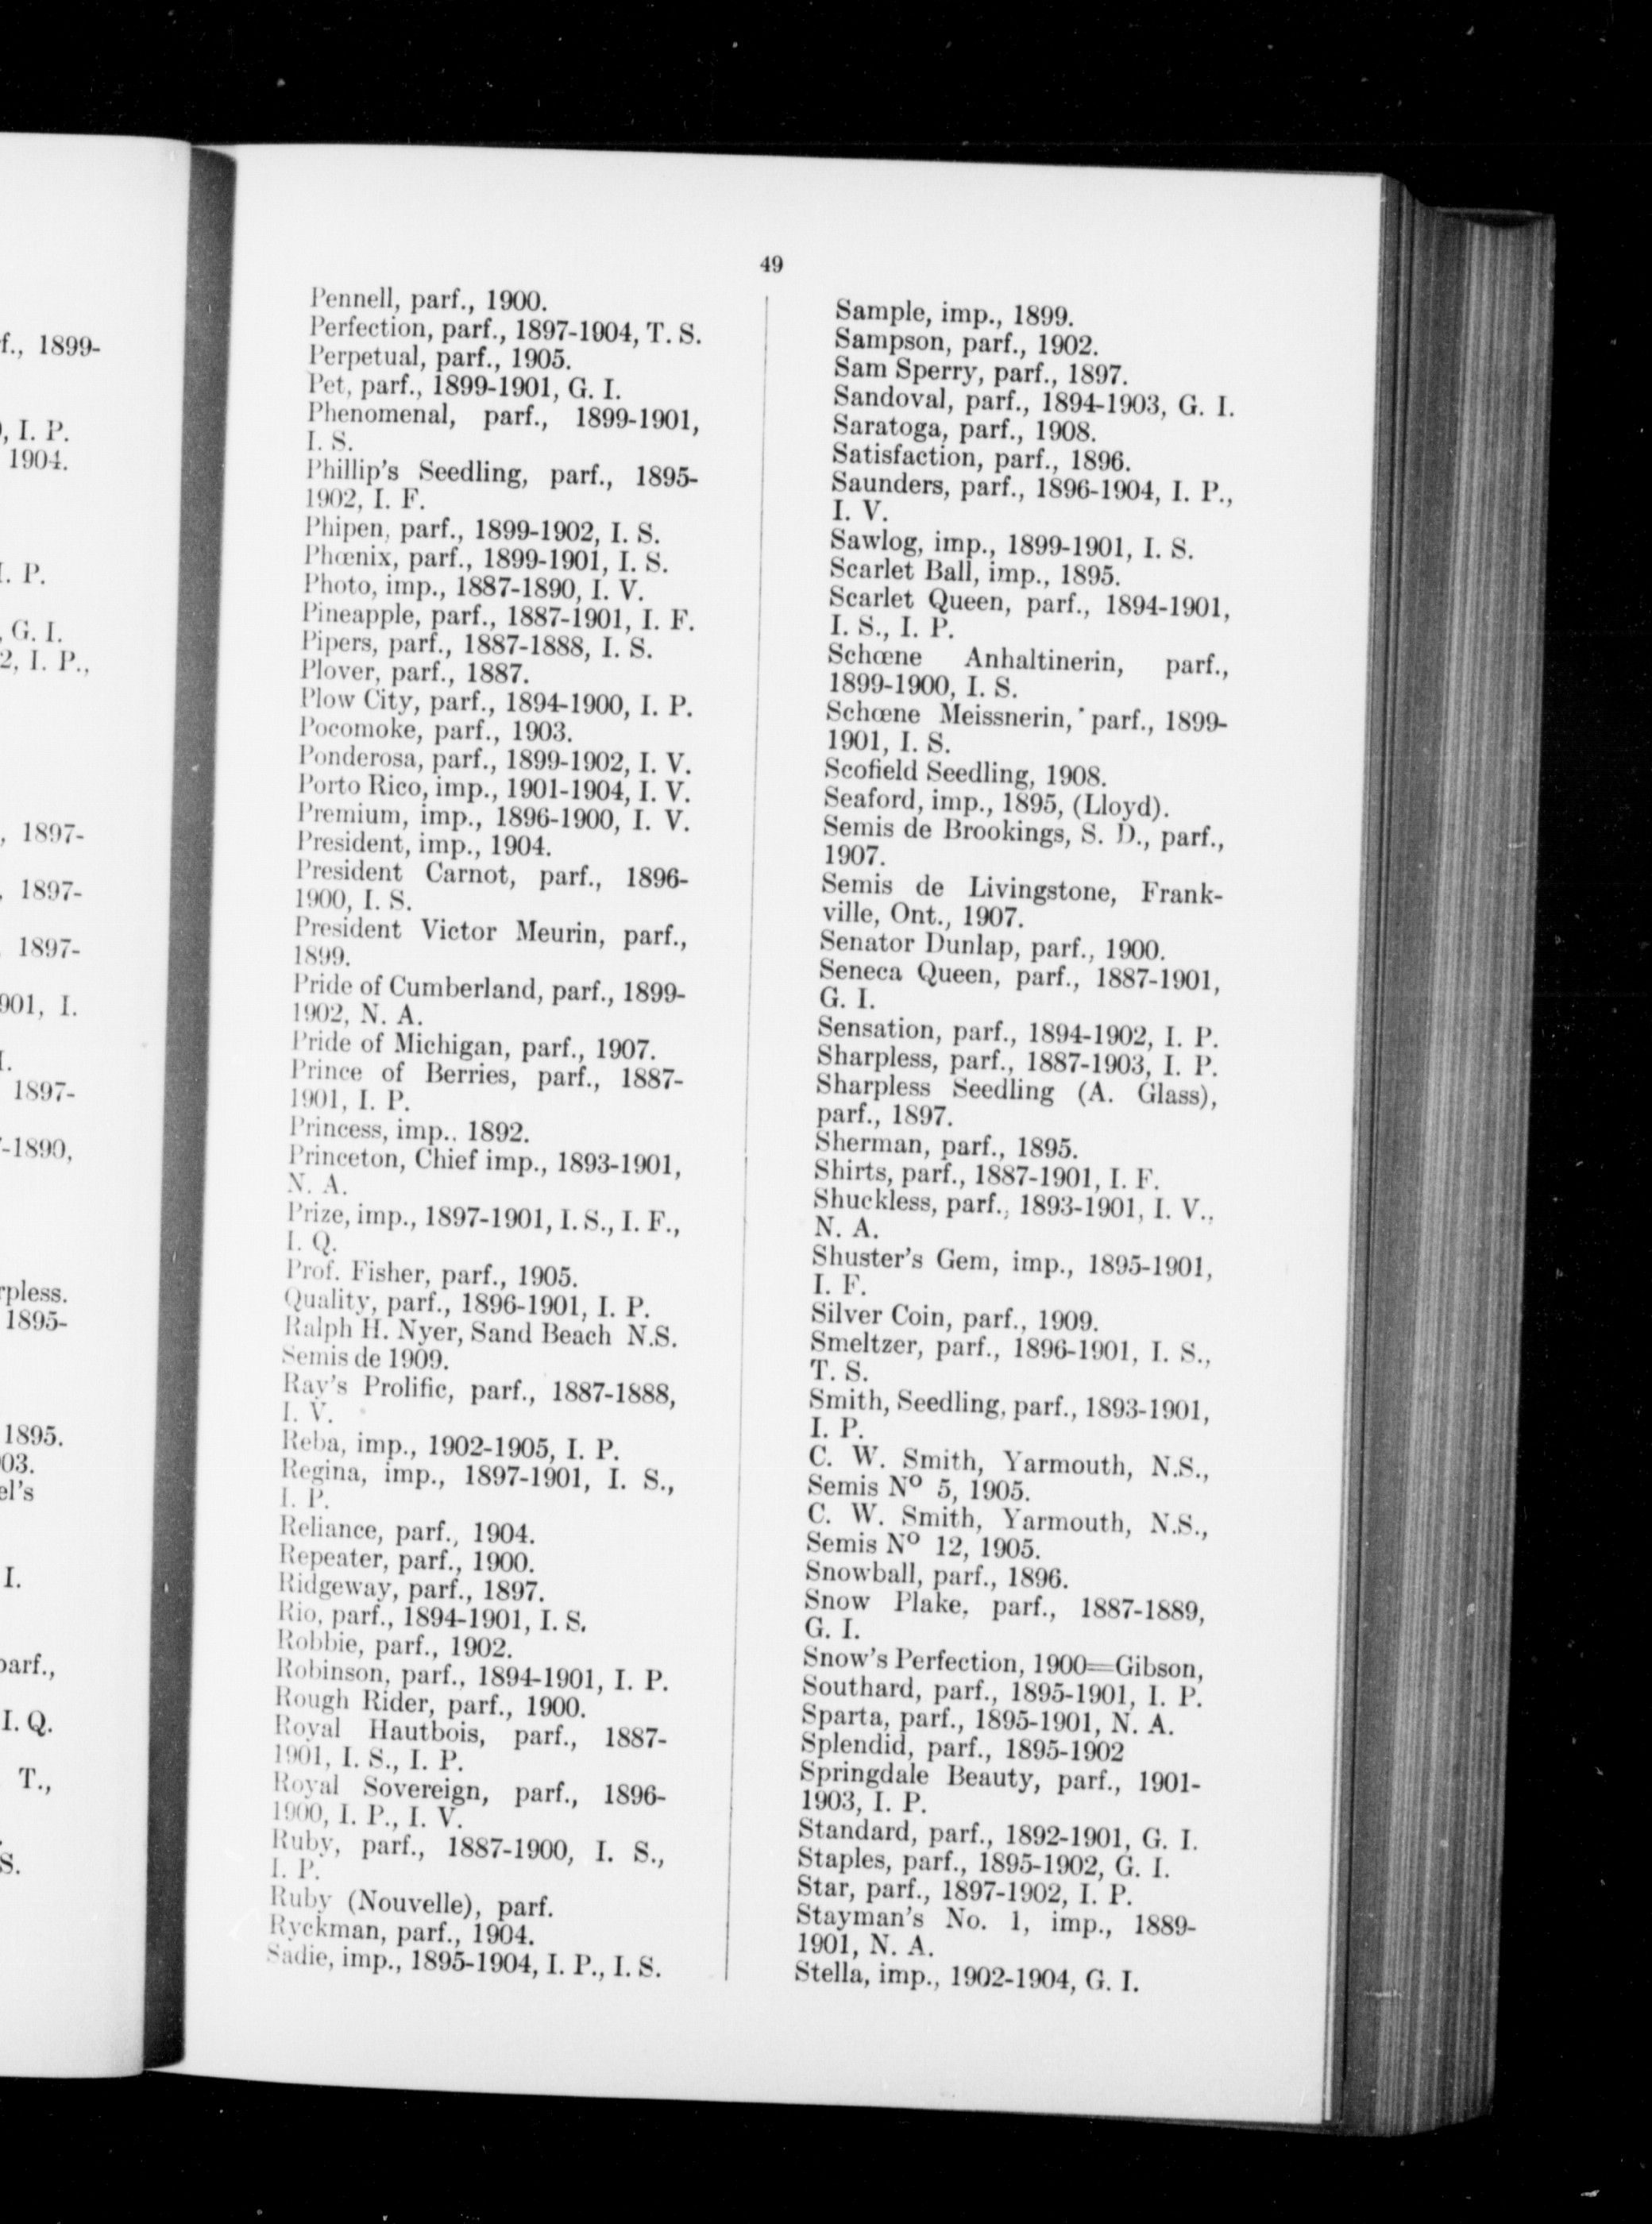 f., 1899-
, I. P.
1904.
I. P.
, G. I.
2, I. P.,
, 1897-
, 1897-
1897-
901, I.
I.
1897-
-1890,
rpless.
1895-
1895.
03.
el's
I.
parf.,
I. Q.
T.,
S.
49
Pennell, parf., 1900.
Perfection, parf., 1897-1904, T. S.
Perpetual, parf., 1905.
Pet, parf., 1899-1901, G. I.
Phenomenal, parf., 1899-1901,
I. S.
Phillip's Seedling, parf., 1895-
1902, I. F.
Phipen, parf., 1899-1902, I. S.
Phœnix, parf., 1899-1901, I. S.
Photo, imp., 1887-1890, I. V.
Pineapple, parf., 1887-1901, I. F.
Pipers, parf., 1887-1888, I. S.
Plover, parf., 1887.
Plow City, parf., 1894-1900, I. P.
Pocomoke, parf., 1903.
Ponderosa, parf., 1899-1902, I. V.
Porto Rico, imp., 1901-1904, I. V.
Premium, imp., 1896-1900, I. V.
President, imp., 1904.
President Carnot, parf., 1896-
1900, I. S.
President Victor Meurin, parf.,
1899.
Pride of Cumberland, parf., 1899-
1902, N. A.
Pride of Michigan, parf., 1907.
Prince of Berries, parf., 1887-
1901, I. P.
Princess, imp.. 1892.
Princeton, Chief imp., 1893-1901,
N. A.
Prize, imp., 1897-1901, I. S., I. F.,
I. Q.
Prof. Fisher, parf., 1905.
Quality, parf., 1896-1901, I. P.
Ralph H. Nyer, Sand Beach N.S.
Semis de 1909.
Ray's Prolific, parf., 1887-1888,
I. V.
Reba, imp., 1902-1905, I. P.
Regina, imp., 1897-1901, I. S.,
I. P.
Reliance, parf., 1904.
Repeater, parf., 1900.
Ridgeway, parf., 1897.
Rio, parf., 1894-1901, I. S.
Robbie, parf., 1902.
Robinson, parf., 1894-1901, I. P.
Rough Rider, parf., 1900.
Royal Hautbois, parf., 1887-
1901, I. S., I. P.
Royal Sovereign, parf., 1896-
1900, I. P., I. V.
Ruby, parf., 1887-1900, I. S.,
I. P.
Ruby (Nouvelle), parf.
Ryckman, parf., 1904.
Sadie, imp., 1895-1904, I. P., I. S.
Sample, imp., 1899.
Sampson, parf., 1902.
Sam Sperry, parf., 1897.
Sandoval, parf., 1894-1903, G. I.
Saratoga, parf., 1908.
Satisfaction, parf., 1896.
Saunders, parf., 1896-1904, I. P.,
I. V.
Sawlog, imp., 1899-1901, I. S.
Scarlet Ball, imp., 1895.
Scarlet Queen, parf., 1894-1901,
I. S., I. P.
Schœne Anhaltinerin, parf.,
1899-1900, I. S.
Schœne Meissnerin, parf., 1899-
1901, I. S.
Scofield Seedling, 1908.
Seaford, imp., 1895, (Lloyd).
Semis de Brookings, S. D., parf.,
1907.
Semis de Livingstone, Frank-
ville, Ont., 1907.
Senator Dunlap, parf., 1900.
Seneca Queen, parf., 1887-1901,
G. I.
Sensation, parf., 1894-1902, I. P.
Sharpless, parf., 1887-1903, I. P.
Sharpless Seedling (A. Glass),
parf., 1897.
Sherman, parf., 1895.
Shirts, parf., 1887-1901, I. F.
Shuckless, parf., 1893-1901, I. V.,
N. A.
Shuster's Gem, imp., 1895-1901,
I. F.
Silver Coin, parf., 1909.
Smeltzer, parf., 1896-1901, I. S.,
T. S.
Smith, Seedling, parf., 1893-1901,
I. P.
C. W. Smith, Yarmouth, N.S.,
Semis Nº 5, 1905.
C. W. Smith, Yarmouth, N.S.,
Semis Nº 12, 1905.
Snowball, parf., 1896.
Snow Plake, parf., 1887-1889,
G. I.
Snow's Perfection, 1900=Gibson,
Southard, parf., 1895-1901, I. P.
Sparta, parf., 1895-1901, N. A.
Splendid, parf., 1895-1902
Springdale Beauty, parf., 1901-
1903, I. P.
Standard, parf., 1892-1901, G. I.
Staples, parf., 1895-1902, G. I.
Star, parf., 1897-1902, I. P.
Stayman's No. 1, imp., 1889-
1901, N. A.
Stella, imp., 1902-1904, G. I.